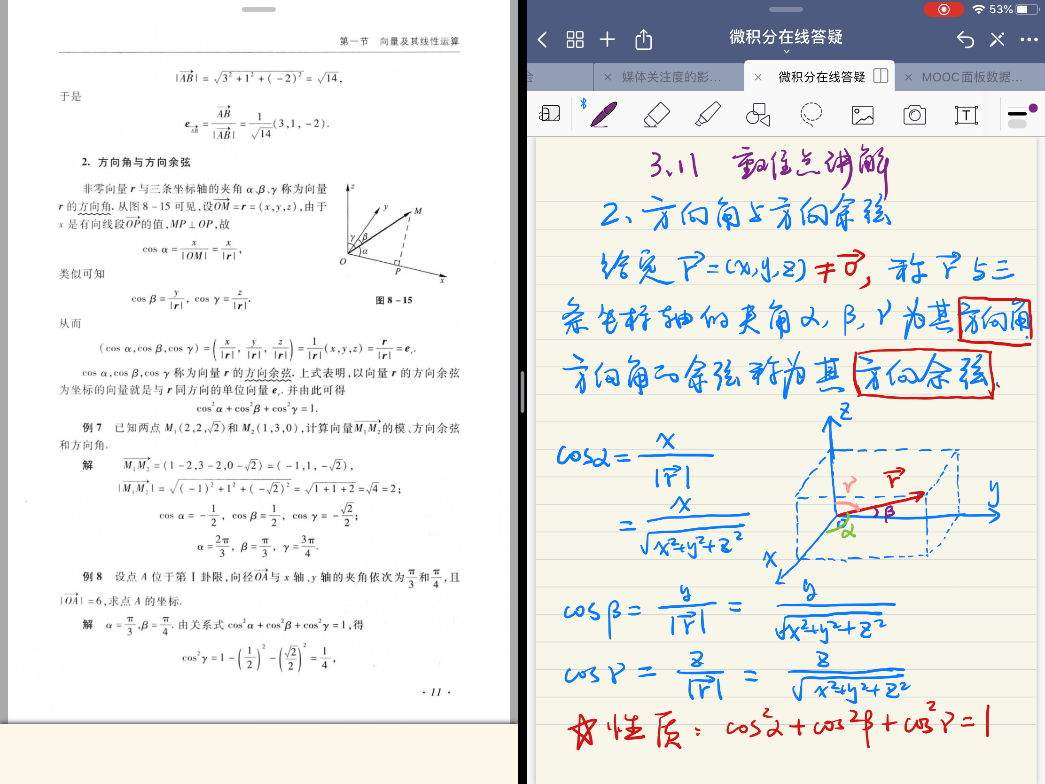 第一节 向量及其线性运算
|AB⃗| = √(3² + 1² + (-2)²) = √14,
于是
e_AB⃗ = AB⃗/|AB⃗| = 1/√14 (3,1,-2).
2. 方向角与方向余弦
非零向量 r 与三条坐标轴的夹角 α、β、γ 称为向量
r 的方向角. 从图 8-15 可见,设OM⃗ = r = (x,y,z),由于
x 是有向线段OP⃗的值,MP⊥OP,故
cos α = x/|OM⃗| = x/|r|,
类似可知
cos β = y/|r|, cos γ = z/|r|.
z
y
M
γ
β
α
O
P
x
图 8-15
从而
(cos α,cos β,cos γ) = (x/|r|, y/|r|, z/|r|) = 1/|r| (x,y,z) = r/|r| = e_r.
cos α,cos β,cos γ 称为向量 r 的方向余弦. 上式表明,以向量 r 的方向余弦
为坐标的向量就是与 r 同方向的单位向量 e_r. 并由此可得
cos²α + cos²β + cos²γ = 1.
例 7 已知两点 M₁(2,2,√2)和 M₂(1,3,0),计算向量M₁M₂⃗的模、方向余弦
和方向角.
解 M₁M₂⃗ = (1-2,3-2,0-√2) = (-1,1,-√2),
|M₁M₂⃗| = √((-1)² + 1² + (-√2)²) = √(1+1+2) = √4 = 2;
cos α = -1/2, cos β = 1/2, cos γ = -√2/2;
α = 2π/3, β = π/3, γ = 3π/4.
例 8 设点 A 位于第 Ⅰ 卦限,向径OA⃗与 x 轴、y 轴的夹角依次为π/3和π/4,且
|OA⃗| = 6,求点 A 的坐标.
解 α = π/3, β = π/4. 由关系式 cos²α + cos²β + cos²γ = 1,得
cos²γ = 1 - (1/2)² - (√2/2)² = 1/4,
· 11 ·
53%
微积分在线答疑
会
× 媒体关注度的影...
× 微积分在线答疑
× MOOC面板数据...
T
3.11 重难点讲解
2、方向角与方向余弦
给定 r⃗ = (x,y,z) ≠ 0⃗, 称 r⃗ 与三
条坐标轴的夹角 α, β, γ 为其方向角
方向角的余弦称为其方向余弦.
cosα = x/|r⃗|
= x/√(x²+y²+z²)
z
r⃗
y
γ
β
α
x
cosβ = y/|r⃗| = y/√(x²+y²+z²)
cosγ = z/|r⃗| = z/√(x²+y²+z²)
☆性质: cos²α + cos²β + cos²γ = 1